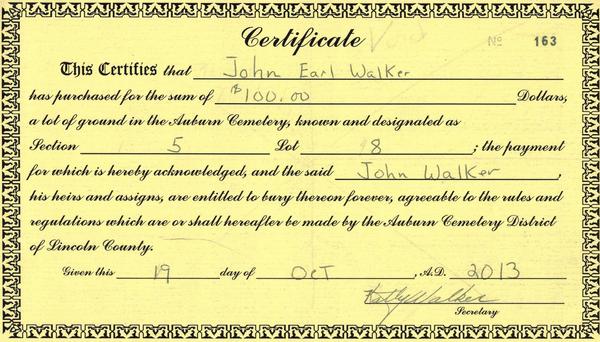 Certificate
Nº 163
This Certifies that John Earl Walker
has purchased for the sum of $100.00 Dollars,
a lot of ground in the Auburn Cemetery, known and designated as
Section 5 Lot 8; the payment
for which is hereby acknowledged, and the said John Walker,
his heirs and assigns, are entitled to bury thereon forever, agreeable to the rules and
regulations which are or shall hereafter be made by the Auburn Cemetery District
of Lincoln County.
Given this 19 day of Oct, A.D. 2013
Kathy Walker
Secretary